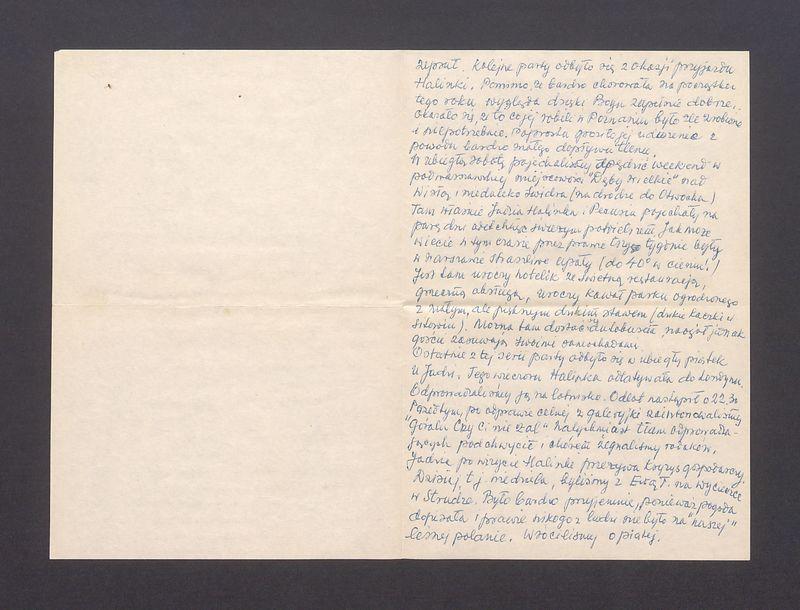 zepsuł. Kolejne party odbyło się z okazji przyjazdu
Halinki. Pomimo, że bardzo chorowała na początku
tego roku wygląda dzięki Bogu zupełnie dobrze.
Okazało się, że to co jej robili w Poznaniu było źle zrobione
i niepotrzebnie. Poprostu groziło jej uduszenie z
powodu bardzo małego dopływu tlenu.
W ubiegłą sobotę pojechaliśmy spędzić weekend w
podwarszawskiej miejscowości "Dęby Wielkie" nad
Wisłą i niedaleko Świdra (na drodze do Otwocka)
Tam właśnie Jadzia Halinka i pojechały na
parę dni odetchnąć świeżym powietrzem, jak może
wiecie w tym czasie przez prawie trzy tygodnie były
w Warszawie straszliwe upały (do 40° w cieniu!)
Jest tam uroczy hotelik ze świetną restauracją,
grzeczną obsługą, uroczy kawał parku ogrodzonego
z małym, ale pięknym dzikim stawem (dzikie kaczki w
sitowiu). Można tam dostać się autobusem, na ogół jednak
goście zasuwają swoimi samochodami.
Ostatnie z tej serii party odbyło się w ubiegły piątek
u Jadzi. Tego wieczoru Halinka odlatywała do Londynu.
Odprowadzaliśmy ją na lotnisko. Odlot nastąpił o 22,30
Przedtym, po odprawie celnej z galeryjki zaintonowaliśmy
"Góralu Czy Ci nie żal" Natychmiast tłum odprowadza-
jących podchwycił i chórem żegnaliśmy rodaków.
Jadzia po wizycie Halinki przeżywa kryzys gospodarczy.
Dzisiaj t.j. niedziela, byliśmy z Ewą T. na wycieczce
w Strudze. Było bardzo przyjemnie, ponieważ pogoda
dopisała i prawie nikogo z ludzi nie było na "naszej"
leśnej polanie. Wróciliśmy o piątej.